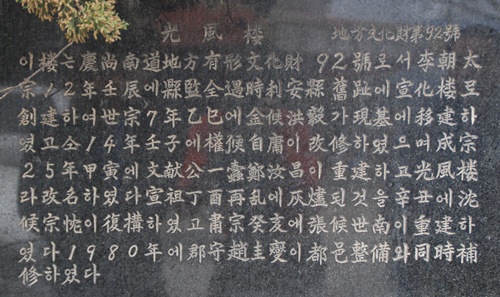 光風楼 地方文化財第92號
이 楼는 慶尚南道 地方有形文化財 92號로서 李朝 太
宗 12年 壬辰에 縣監 全遇時 利安縣 舊趾에 宣化楼로
創建하여 世宗 7年 乙巳에 金候洪毅가 現基에 移建하
였고 仝 14年 壬子에 權候自庸이 改修하였으며 成宗
25年 甲寅에 文献公 一蠹 鄭汝昌이 重建하고 光風楼
라 改名하였다 宣祖 丁酉再乱에 灰爐되것을 辛丑에 沈
候宗忱이 復構하였고 肅宗 癸亥에 張候世南이 重建하
였다 1980年에 郡守 趙圭燮이 都邑整備와 同時 補
修하였다